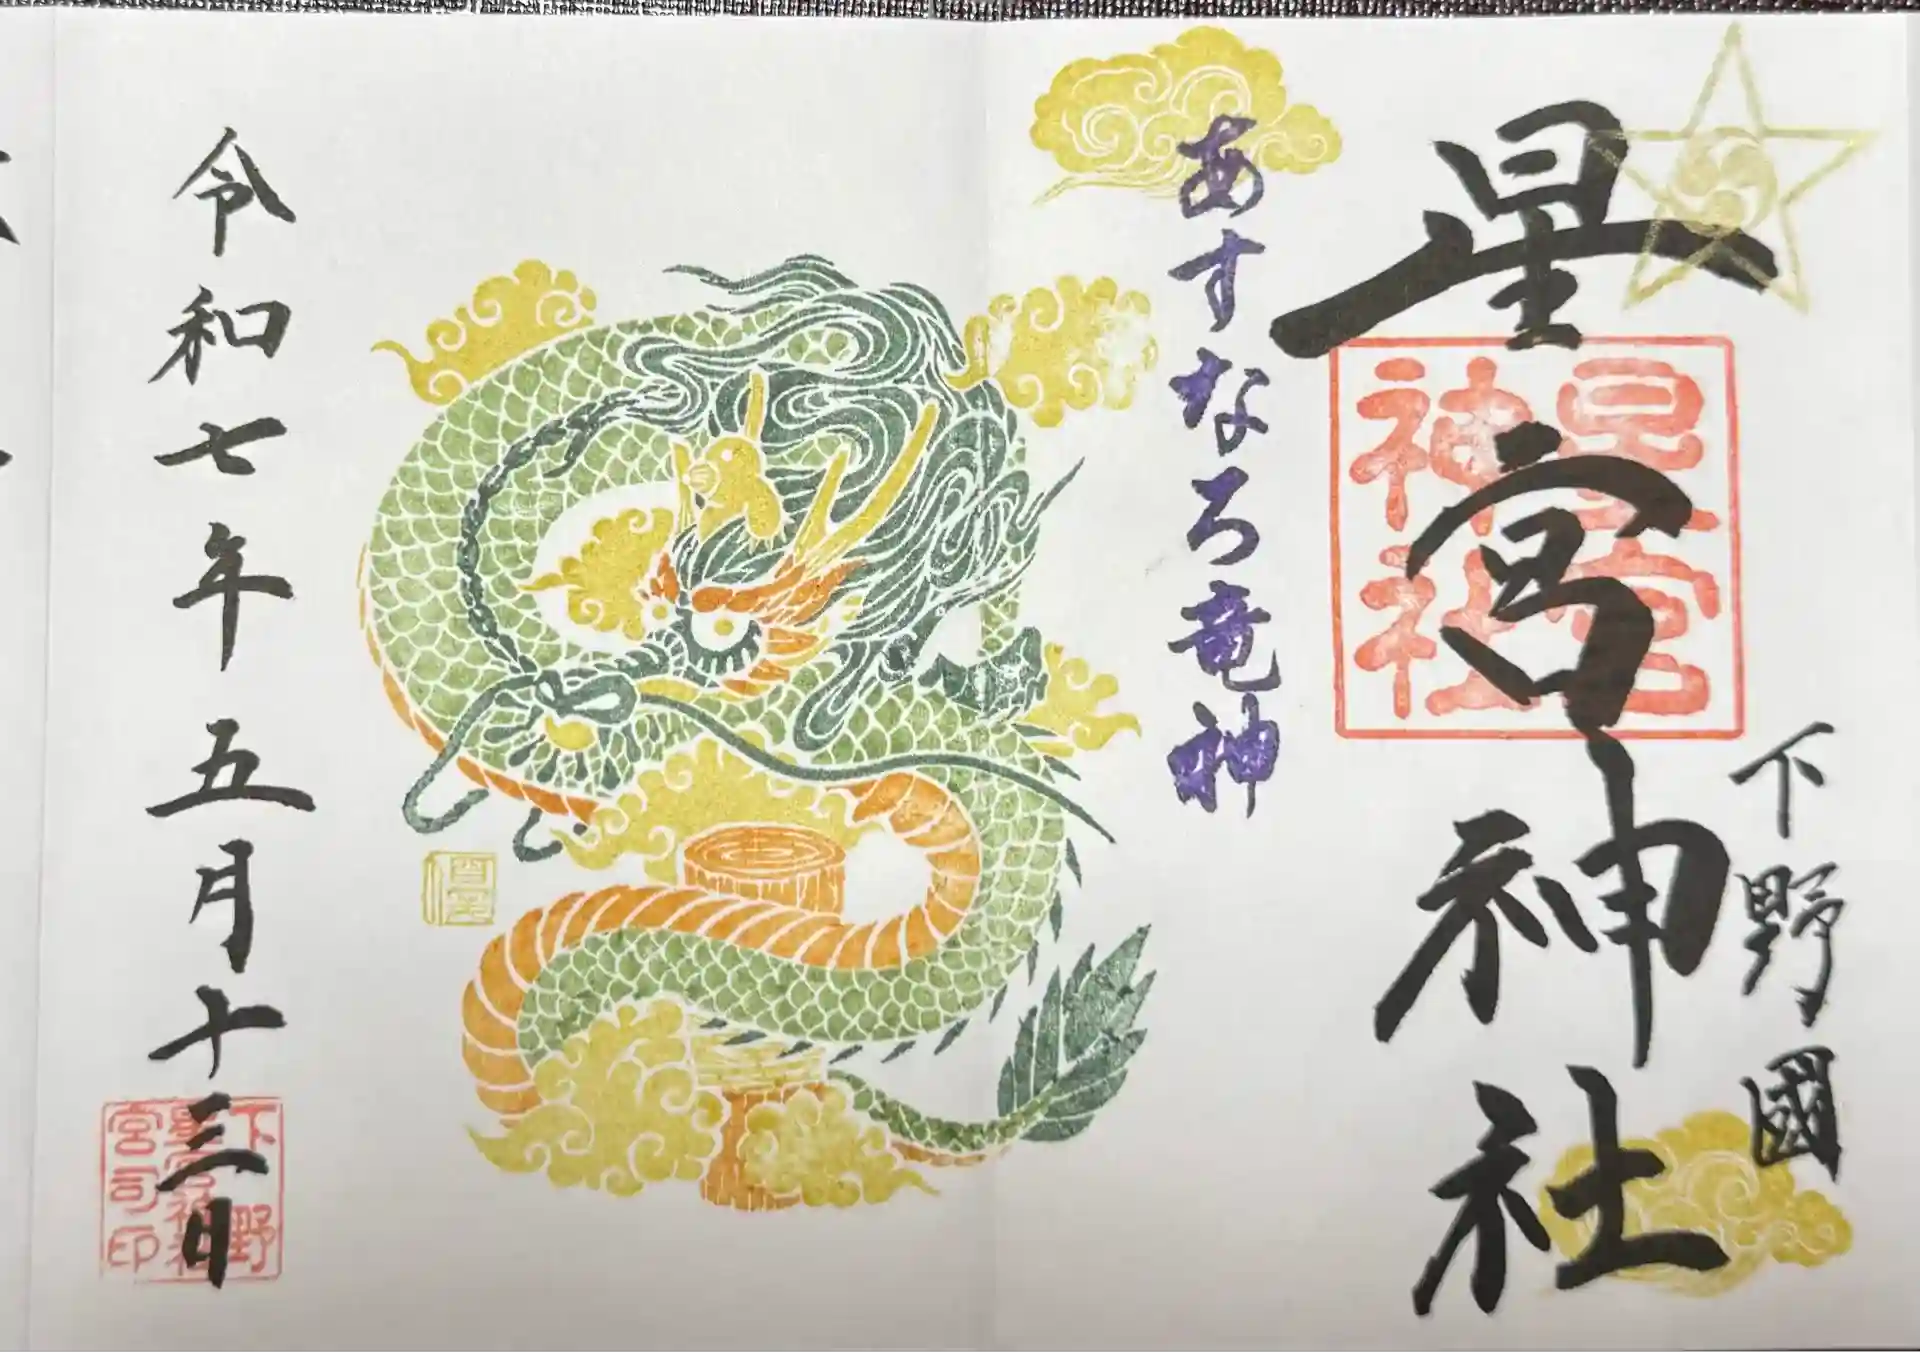 下野國
星宮神社
星宮
神社
あすなろ竜神
令和七年五月十三日
下野
星宮神社
宮司印